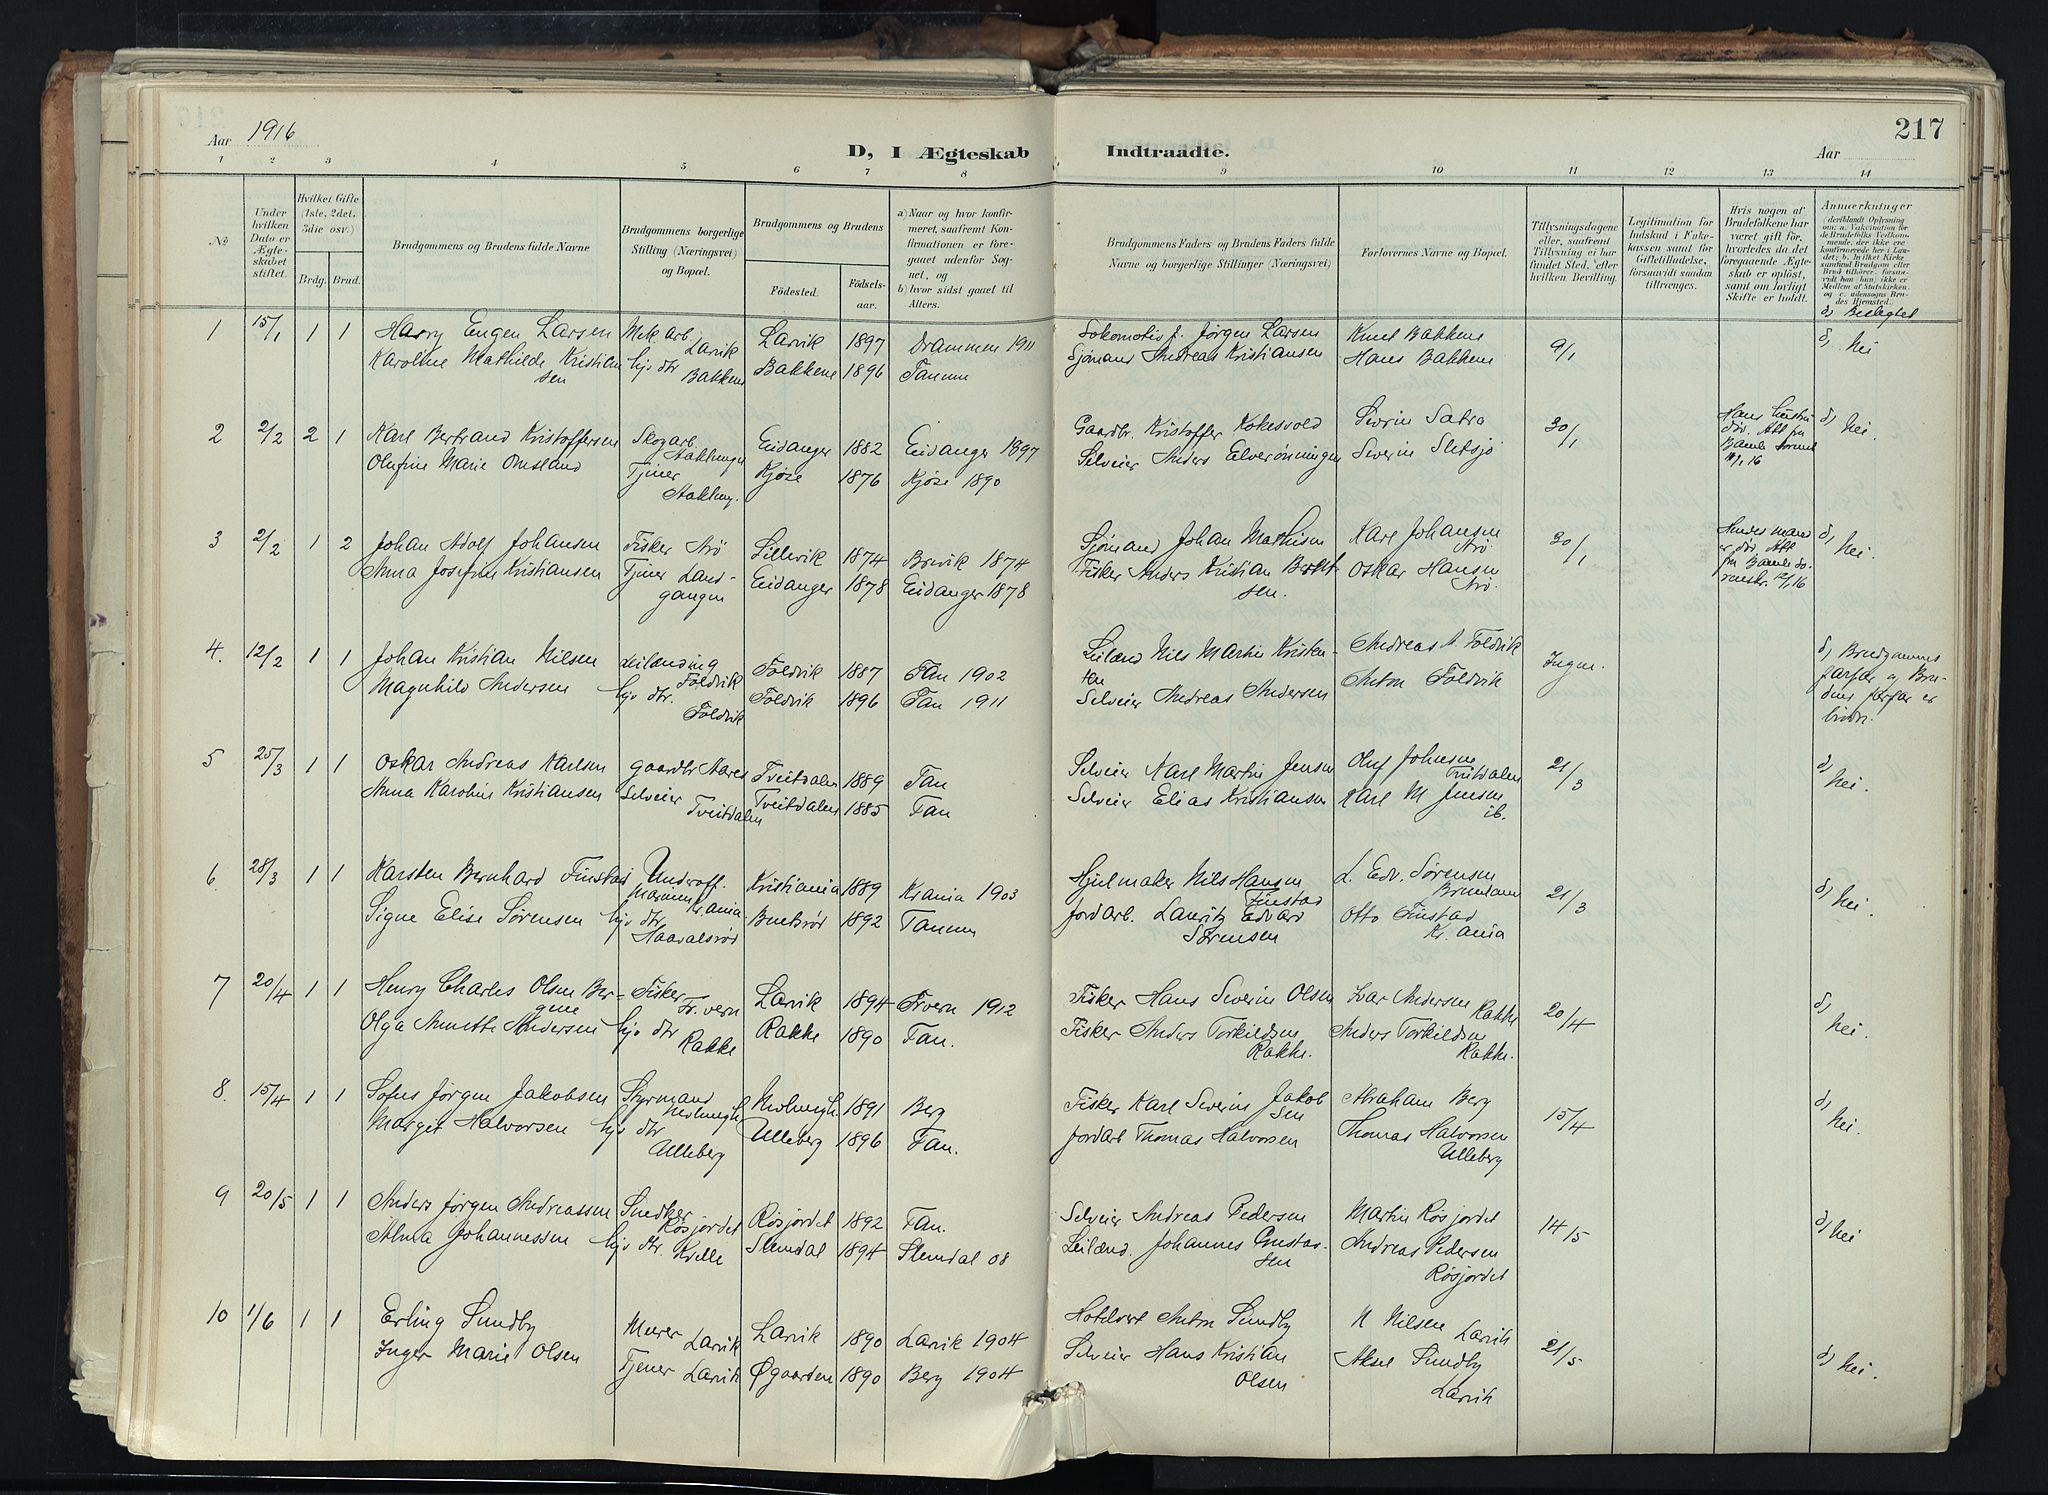 217
Aar 1916
D, I Ægteskab Indtraadte.
Aar
1 2 3 4 5 6 7 8 9 10 11 12 13 14
No
Under hvilken Dato er Ægteskabet stiftet.
Hvilket Gifte (1ste, 2det, 3die osv.)
Brdg. Brud.
Brudgommens og Brudens fulde Navne
Brudgommens borgerlige Stilling (Næringsvei) og Bopæl.
Brudgommens og Brudens
Fødested.
Fødselsaar.
a) Naar og hvor konfirmeret, saafremt Konfirmationen er foregaaet udenfor Sognet, og
b) hvor sidst gaaet til Alters.
Brudgommens Faders og Brudens Faders fulde Navne og borgerlige Stillinger (Næringsvei)
Forlovernes Navne og Bopæl.
Tillysningsdagene eller, saafremt Tillysning ei har fundet Sted, efter hvilken Bevilling.
Legitimation for Indskud i Enkekassen samt for Giftetilladelse, forsaavidt saadan tiltrænges.
Hvis nogen af Brudefolkene har været gift før, hvorledes da det foregaaende Ægteskab er opløst, samt om lovligt Skifte er holdt.
Anmerkninger
d) Beslægtet
1 15/1 1 1 Harry Eugen Larsen Mek. arb. Larvik Larvik 1897 Drammen 1911 Lokomotivf. Jørgen Larsen Knut Bakkene 9/1 d, nei
Karoline Mathilde Kristiansen hjv dtr Bakkene Bakkene 1896 Tanum Sjømand Andreas Kristiansen Hans Bakkene
2 2/2 2 1 Karl Bertrand Kristoffersen Skogarb. Eidanger 1882 Eidanger 1897 Gaardbr. Kristoffer Kokesvold Severin Sætra 30/1 d, nei.
Olufine Marie Omsland Tjener Kjose 1876 Kjose 1890 Selveier Anders Severin
3 2/2 1 2 Johan Adolf Johansen Fisker Arø Lillevik 1874 Brevik 1874 Sjømand Johan Mathisen Karl Johansen Arø 30/1 Hendes mand er død. Att fra Bamle Sorenskr. 12/1 16 d, nei.
Anna Josefine Kristiansen Tjener Langangen Eidanger 1878 Eidanger 1878 Fisker Anders Kristian Oskar Hansen Arø.
4. 12/2 1 1 Johan Kristian Nilsen Leilænding Foldvik Foldvik 1887 Tan 1902 Leilænd Nils Martin Kristensen Andreas A. Foldvik Ingen. d, Brudgommens farfar og Brudens farfar er brødre.
Magnhild Andersen hjv dtr. Foldvik Foldvik 1896 Tan 1911 Selveier Andreas Andersen Anton Foldvik
5 25/3 1 1 Oskar Andreas Karlsen gaardbr Aares Tveitdalen 1889 Tan Selveier Karl Martin Jensen Oluf Johnsen Tveitdalen 21/3 d, nei.
Anna Karoline Kristiansen Selveier Tveitdalen Tveitdalen 1885 Tan Selveier Elias Kristiansen Karl M Jensen ib.
6. 28/3 1 1 Karsten Bernhard Finstad Underoff. Marinen Kr.ania. Kristiania 1889 Krania 1903 Hjulmaker Nils Hansen Finstad L. Edv. Sørensen Brunlanes 21/3 d, nei.
Signe Elise Sørensen hjv dtr Haavalsrød 1892 Tanum Jordarb. Lauritz Edvard Sørensen Otto Finstad Kr.ania
7 20/4 1 1 Henry Charles Olsen Bergene Fisker Fr.vern Larvik 1894 Frvern 1912 Fisker Hans Severin Olsen Ivar Andersen Rakke 20/4 d, nei.
Olga Annette Andersen hjv dtr Rakke Rakke 1890 Tan. Fisker Anders Torkildsen Rakke. Anders Torkildsen Rakke.
8. 15/4 1 1 Sofus Jørgen Jakobsen Styrmand Nevlungh Nevlungh 1891 Berg Fisker Karl Severin Jakobsen Abraham Berg 15/4 d, nei.
Margit Halvorsen hjv dtr Ulleberg Ulleberg 1896 Tan. Jordarb Thomas Halvorsen Thomas Halvorsen Ulleberg
9 20/5 1 1 Anders Jørgen Andreassen Snedker Røsjordet Røsjordet 1892 Tan. Selveier Andreas Pedersen Martin Røsjordet 14/5 d, nei
Alma Johannessen hjv dtr. Kville Slemdal 1894 Slemdal 08 Leilænd. Johannes Gustavsen Andreas Pedersen Røsjordet
10 1/6 1 1 Erling Sundby Murer Larvik Larvik 1890 Larvik 1904 Hotelvert Anton Sundby N Nilsen Larvik 21/5 d, nei.
Inger Marie Olsen Tjener Larvik Øgaarden 1890 Berg 1904 Selveier Hans Kristian Olsen Aksel Sundby Larvik